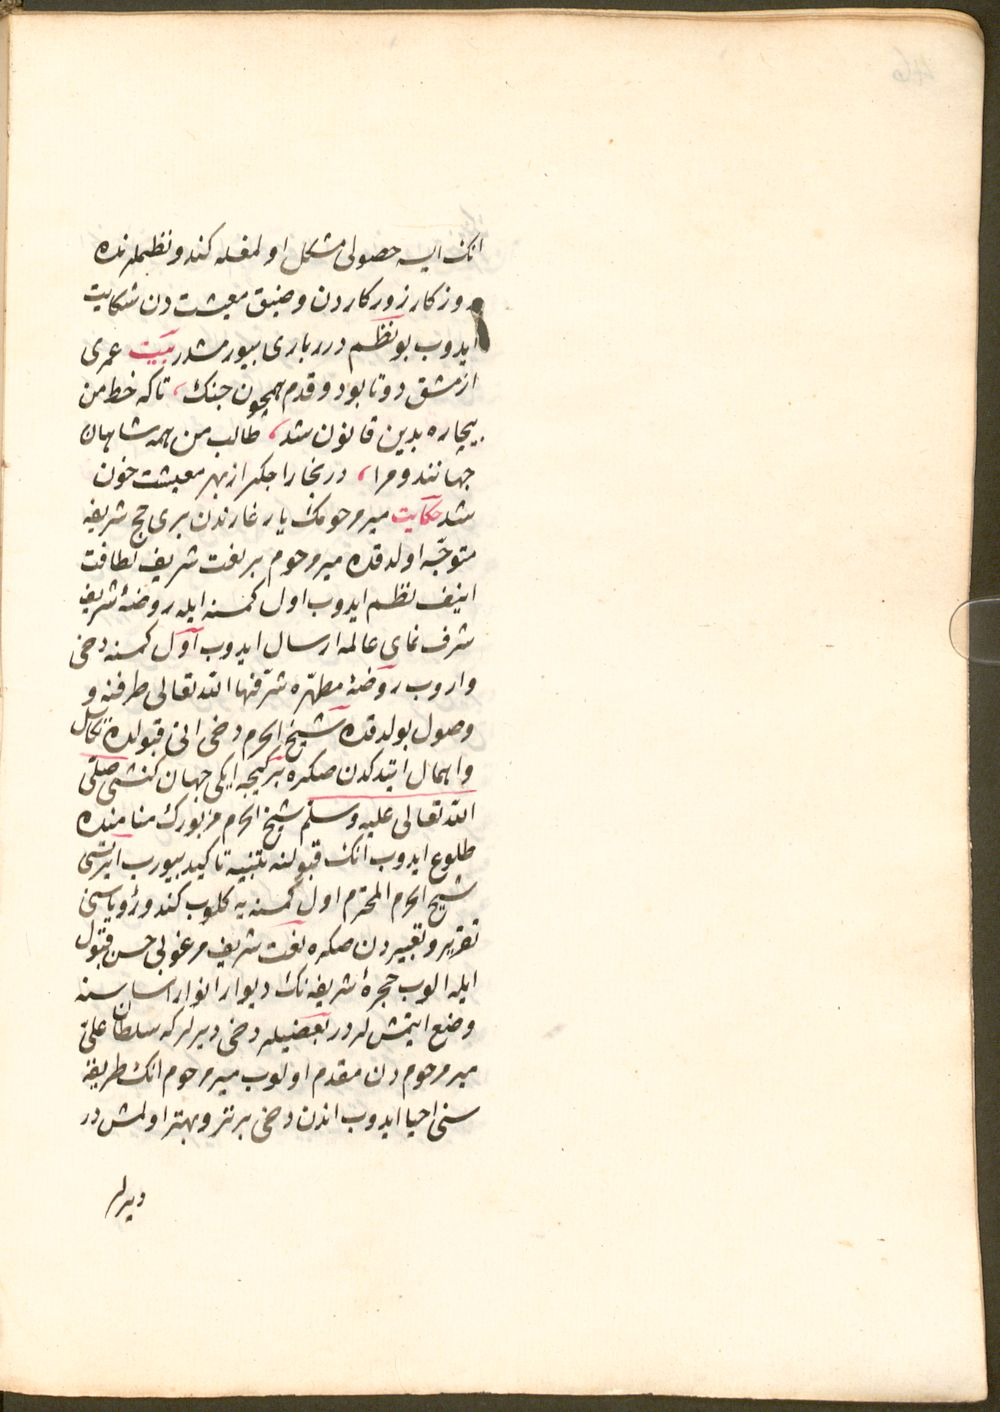 انك ايسه حصولى مشكل اولمغله كندو نظملرنده
روزكار زوركاردن وضيق معيشت دن شكايت
ايدوب بو نظم درربارى بيورمشلدر بيت عمرى
از مشق دوتا بود و قدم همچون چنك، تا كه خط من
بيچاره بدين قانون شد، طالب من همه شاهان
جهانند و مرا، در بخارا جكر از بهر معيشت خون
شد حكايت مير مرحومك يار غارندن برى حج شريفه
متوجّه اولدقده مير مرحوم بر نعت شريف لطافت
اليف نظم ايدوب اول كمسنه ايله روضۀ شريف
شرف نماى عالمه ارسال ايدوب اول كمسنه دخى
واروب روضۀ مطهّره شرّفها الله تعالى طرفنه و
وصول بولدقده شيخ الحرم دخى انى قبولده تكاسل
واهمال ايتدكدن صكره بر كيجه ايكى جهان كنشى صلّى
الله تعالى عليه وسلّم شيخ الحرم مزبورك منامنده
طلوع ايدوب انك قبولنه تنبيه تاكيد بيورب ايرتسى
شيخ الحرم المحترم اول كمسنه يه كلوب كندو رؤياسنى
تقرير وتعبيردن صكره نعت شريف مرغوبى حسن قبول
ايله الوب حجرۀ شريفه نك ديوار انوار اساسنه
وضع ايتمشلردر بعضيلر دخى ديرلر كه سلطان على
مير مرحوم دن مقدم اولوب مير مرحوم انك طريقه
سنى احيا ايدوب اندن دخى برتر وبهتر اولمش در
ديرلر